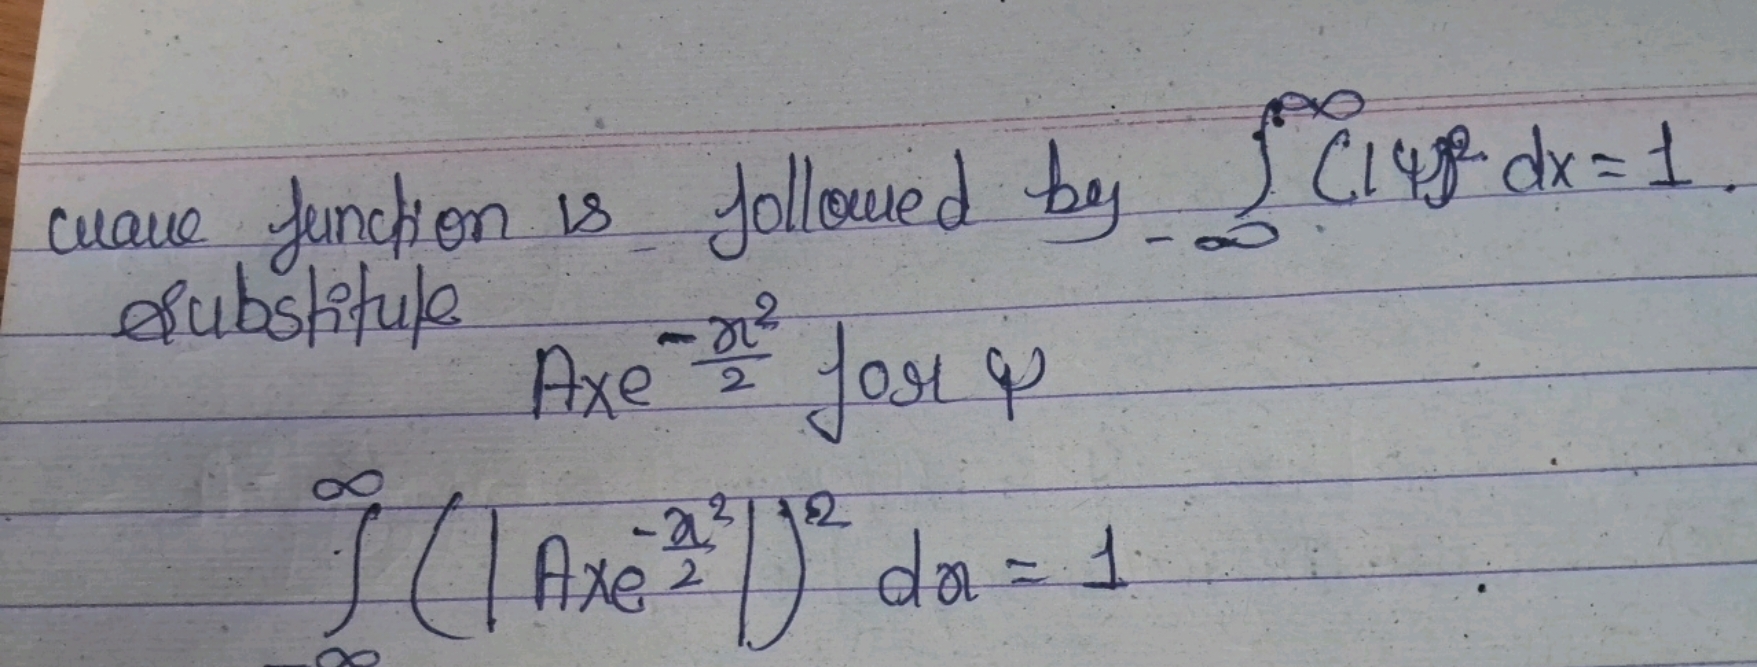 wave function is followed by ∫_{-∞}^{∞} (|ψ|)² dx = 1.
substitute
Axe^{-x²/2} for ψ
∫_{-∞}^{∞} (|Axe^{-x²/2}|)² dx = 1